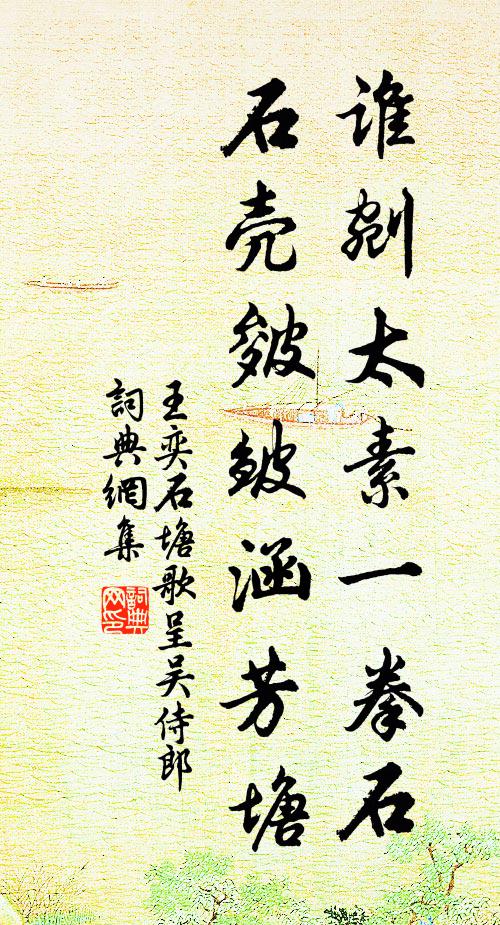 谁剜太素一拳石
石壳皺皴涵芳塘
王奕石塘歌呈吴侍郎
詞典網集
詞典网印